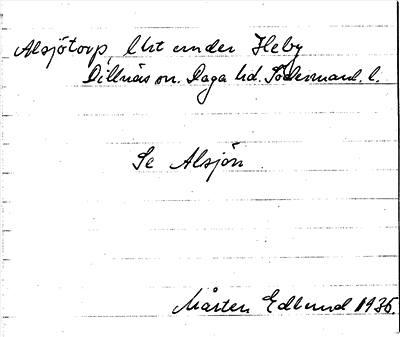 Alsjötorp, lht under Heby
Dillnäs sn. Daga hd. Södermanl. l.
Se Alsjön
Mårten Edlund 1935.